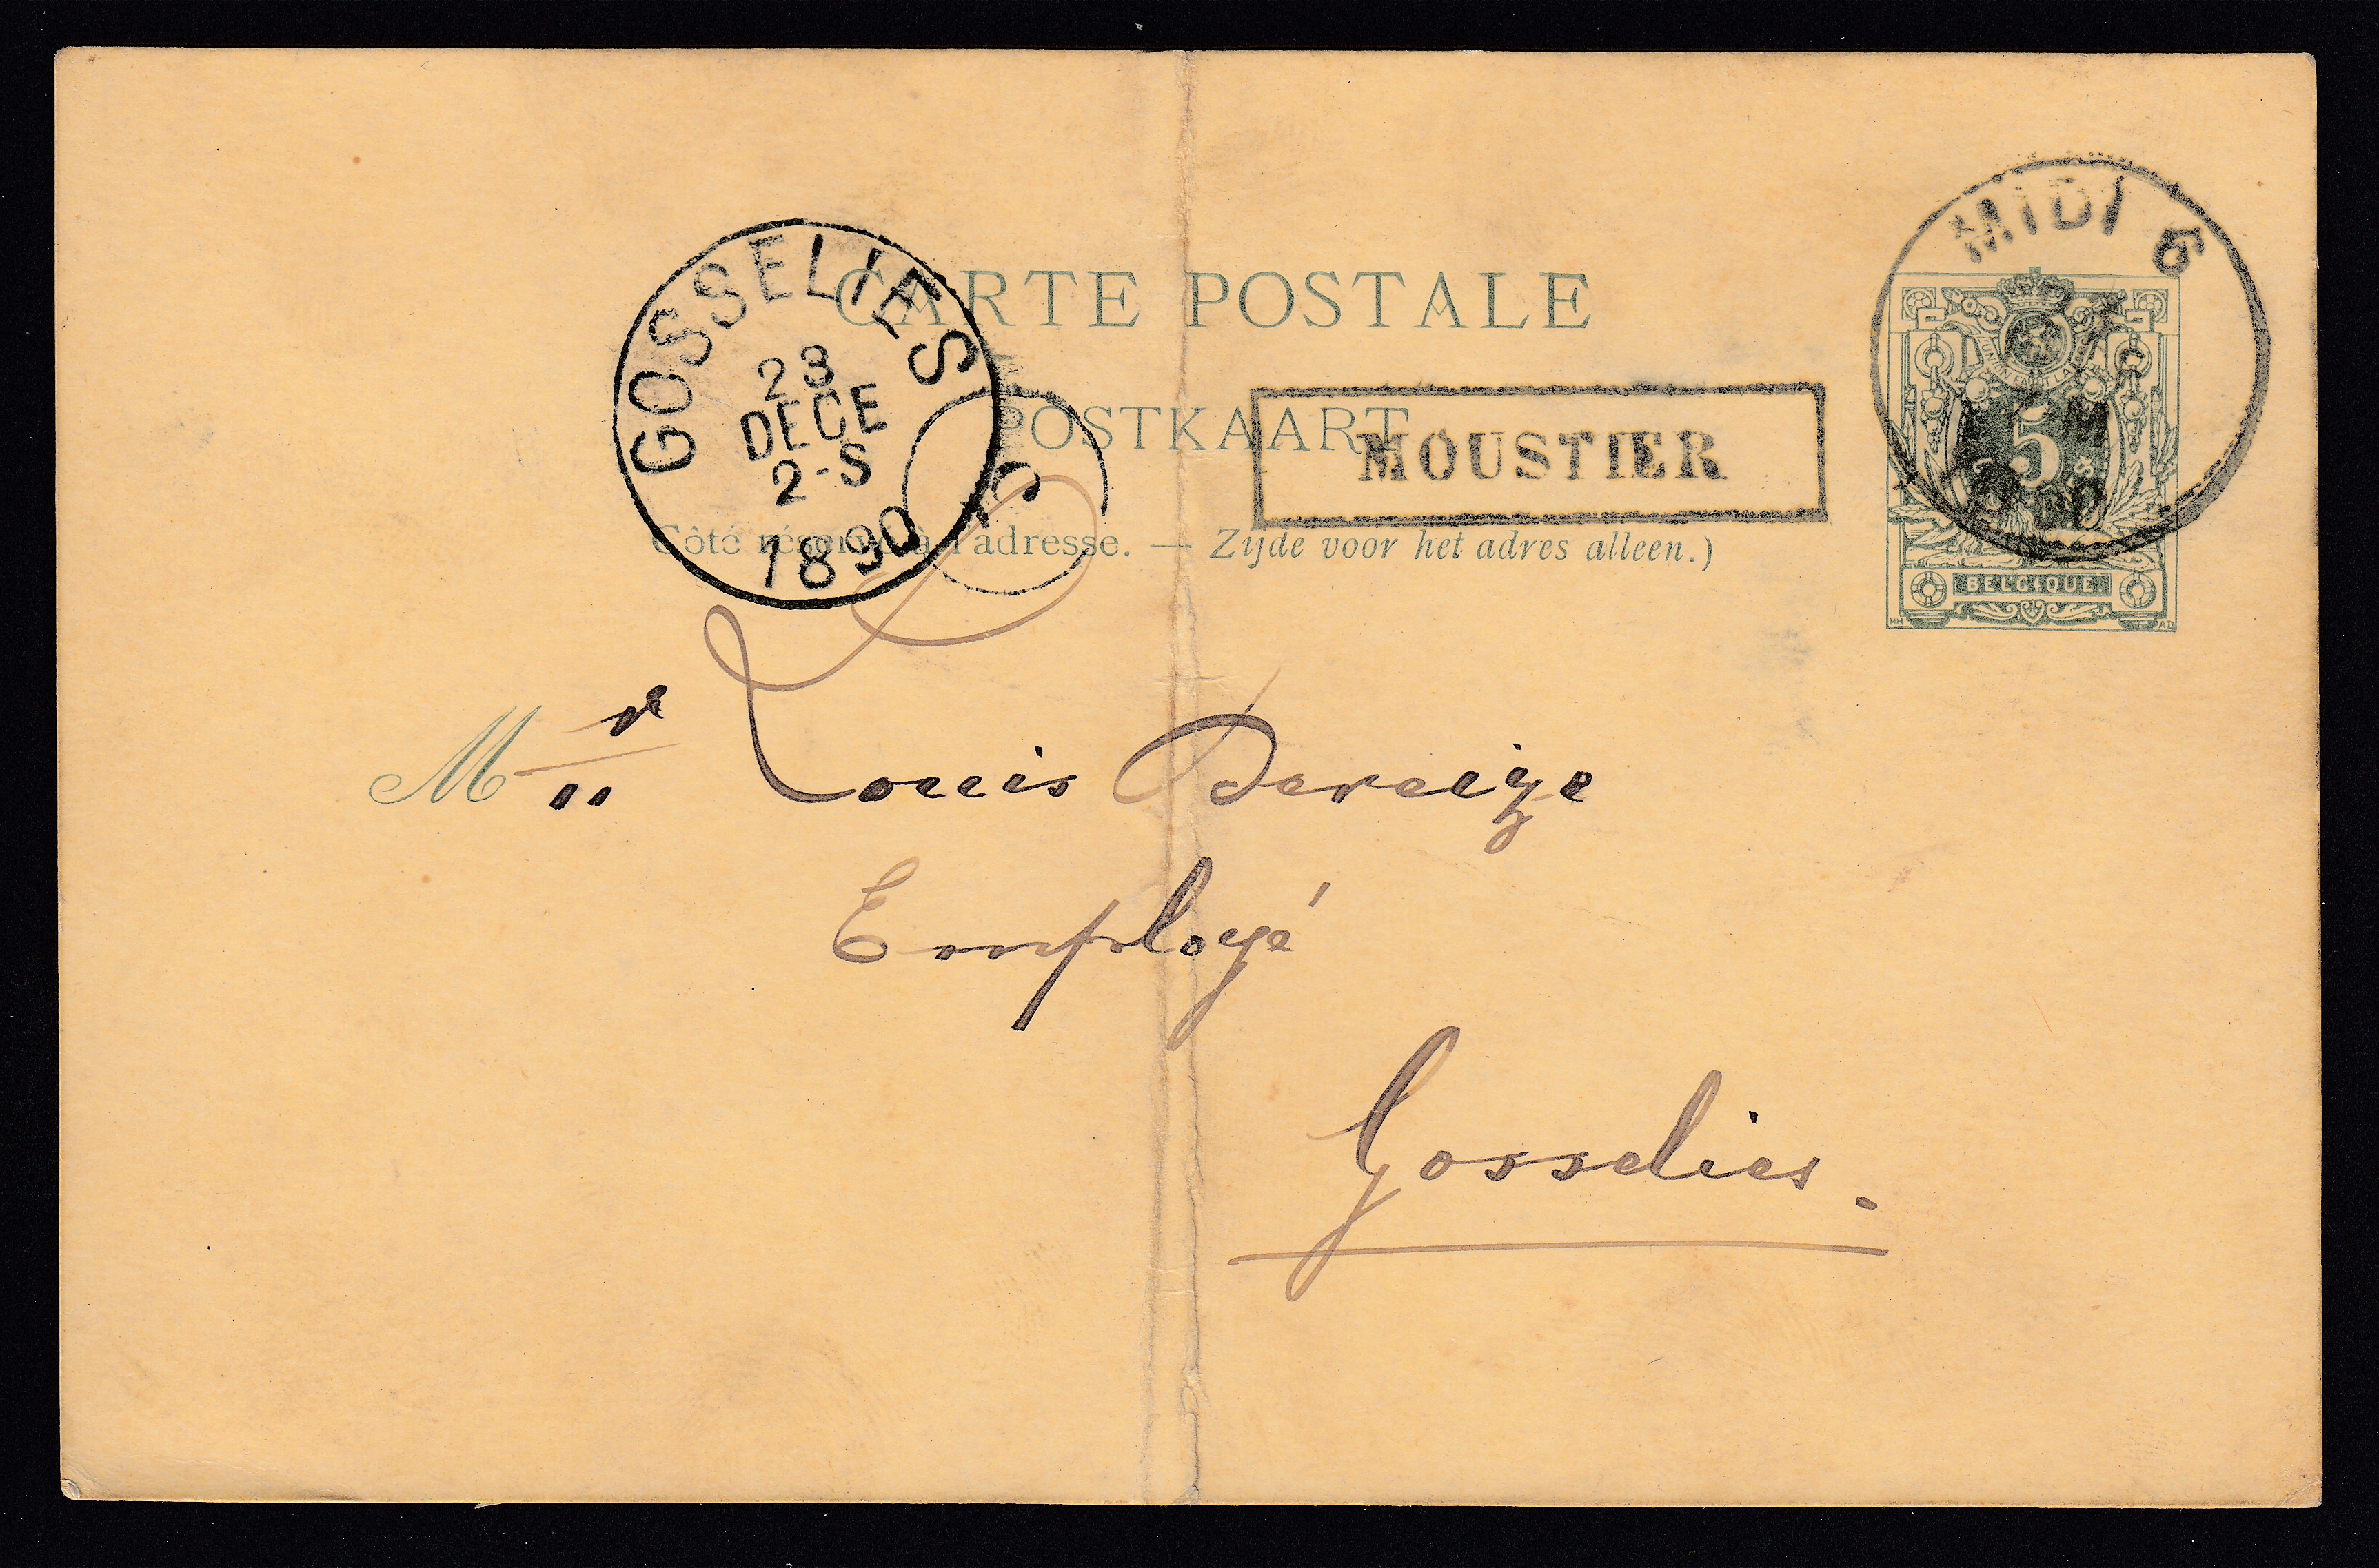 MIDI 6
GOSSELIES
23
DECE
2-S
1890
CARTE POSTALE
POSTKAART
MOUSTIER
Côté réservé à l'adresse. — Zijde voor het adres alleen.)
5
BELGIQUE
Mr Louis
Employé
Gosselies.